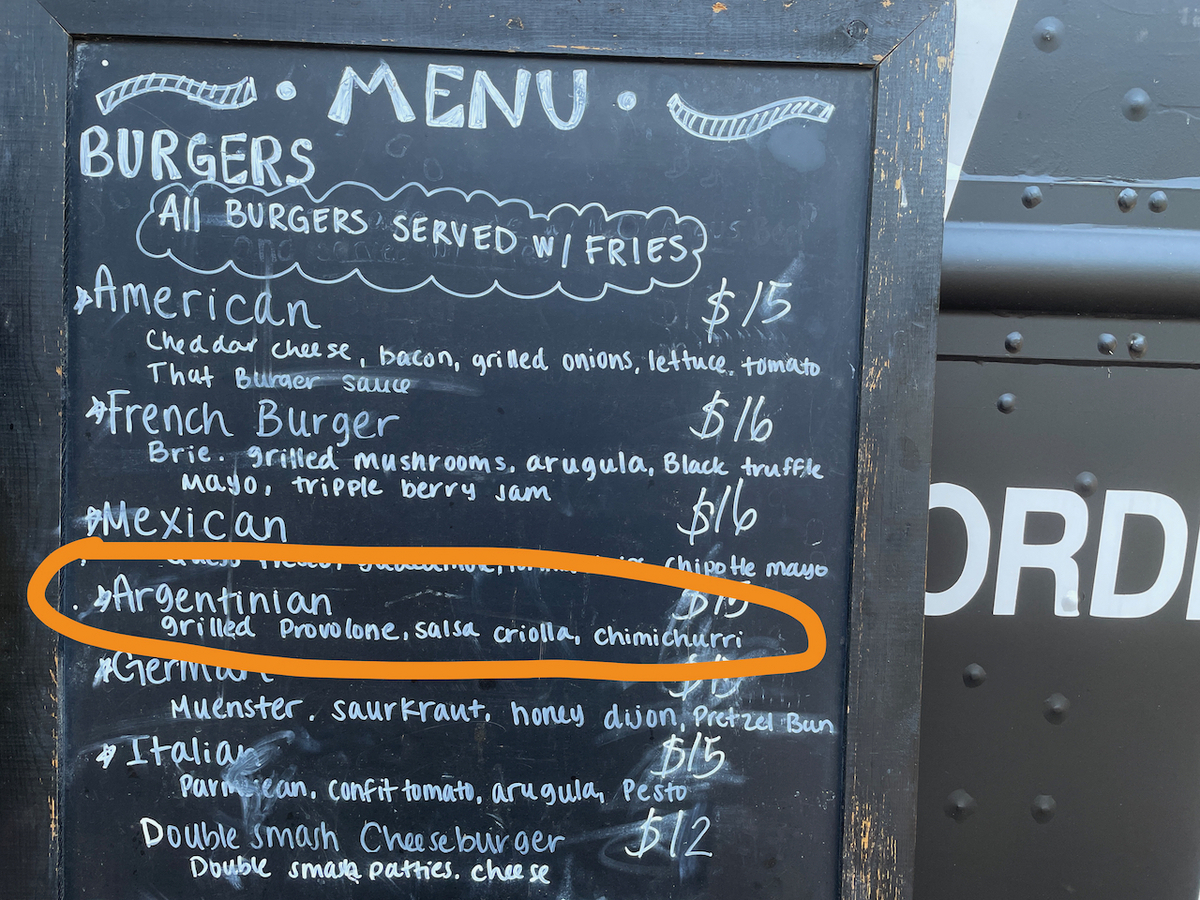 MENU
BURGERS
All BURGERS SERVED W/ FRIES
American $15
Cheddar cheese, bacon, grilled onions, lettuce. tomato
That Burger sauce
French Burger $16
Brie. grilled mushrooms, arugula, Black truffle
Mayo, tripple berry jam
Mexican $16
chipotle mayo
Argentinian $15
grilled Provolone, salsa criolla, chimichurri
German
Muenster. saurkraut, honey dijon, Pretzel Bun
Italian $15
confit tomato, arugula, Pesto
Double smash Cheeseburger $12
Double smash patties. cheese
ORD